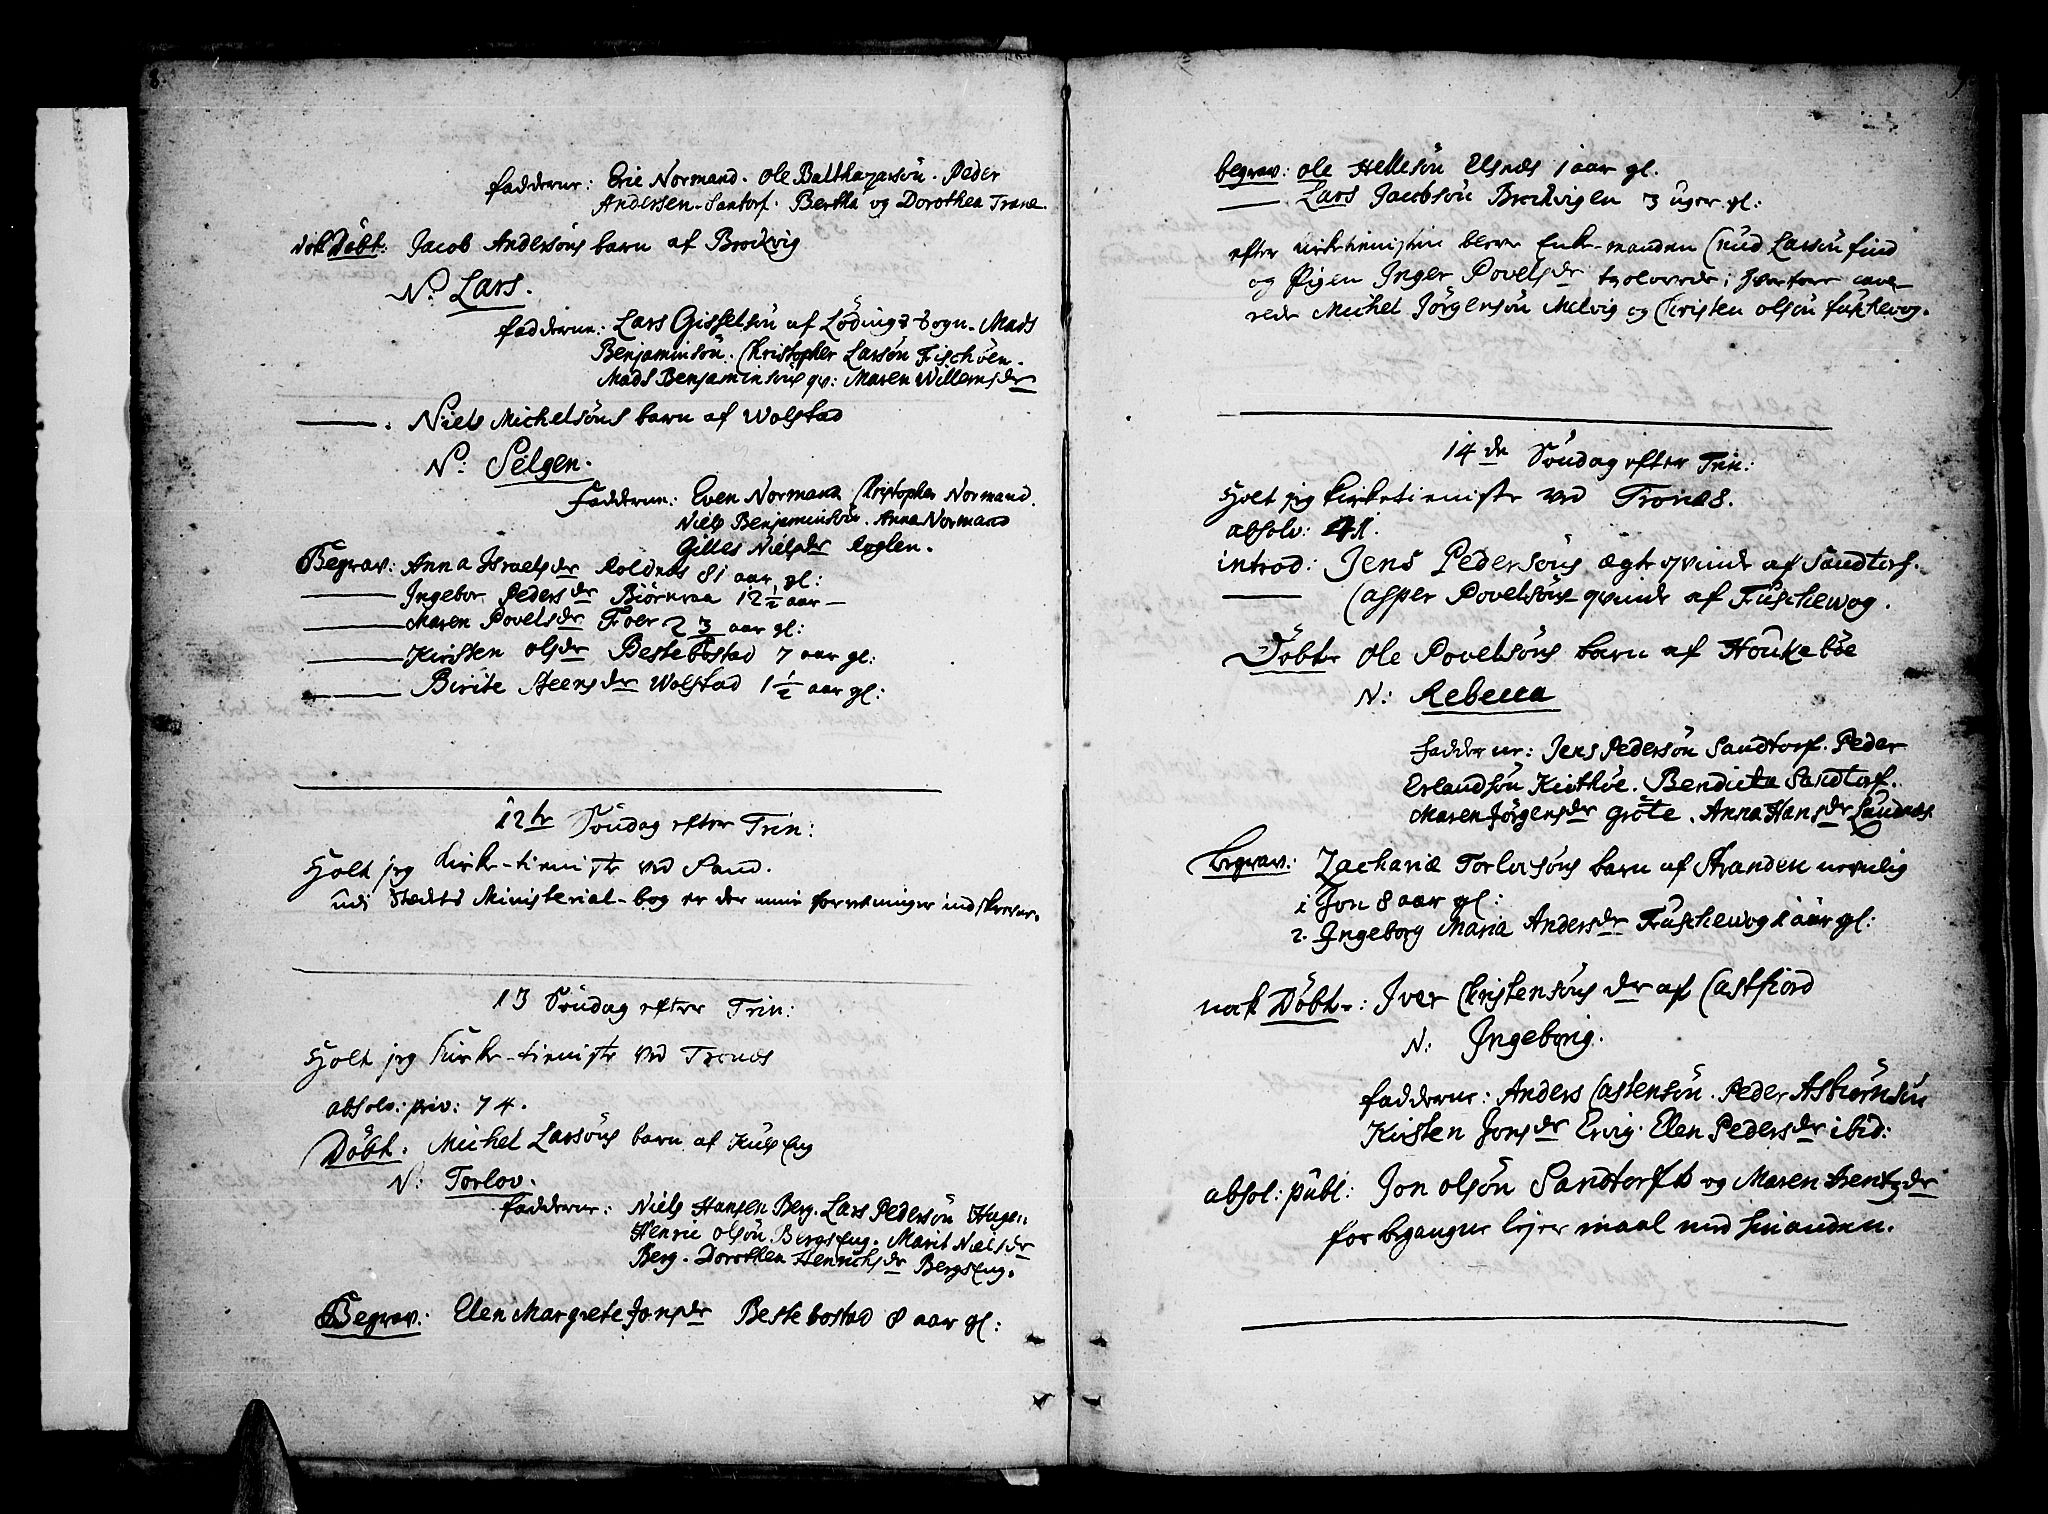 8.
fadderne: Eric Normand. Ole Balthazarsön. Peder
Andersen-Santorf. Bertha og Dorothea Trane.
nok Döbt: Jacob Andersöns barn af Brodvig
N: Lars.
fadderne: Lars Gisselsön af Lödings Sogn. Mads
Benjaminsön. Christopher Larsön Fischöen.
Mads Benjaminsöns qv: Maren Willemsdr
——. Niels Michelsöns barn af Wolstad
N: Selgen.
Fadderne: Even Normand Christopher Normand.
Niels Benjaminsön. Anna Normand
Gilles Nielsdr Ryglen.
Begrav: Anna Israelsdr Roldnes 81 aar gl:
—— Ingebor Pedersdr Biörnraa 12 1/2 aar —
—— Maren Povelsdr Foer 2 3/4 aar gl:
—— Kirsten Olsdr Bestebostad 7 aar gl:
—— Birite Steensdr Wolstad 1 1/2 aar gl:
12te Söndag efter Trin:
Holt jeg Kirke-tieniste ved Sand.
udi Stedets Ministerial-bog er der mine forretninger indskrevne.
13 Söndag efter Trin:
Holt jeg Kirke-tieniste ved Tronæs
absolv: priv: 74.
Döbt. Michel Larsöns barn af Kulseng
N: Torlov.
fadderne: Niels Hansen Berg. Lars Pedersön Hagen:
Henric Olsön Bergseng. Marit Nielsdr
Berg. Dorothea Henrichsdr Bergseng.
Begrav: Elen Margrete Jonsdr Bestebostad 8 aar gl:
9
begrav: Ole Hellesön Elsnæs 1 aar gl.
—— Lars Jacobsön Brodvigen 3 uger gl:
efter kirketienisten bleve Enke-manden Cnud Larsön find
og Pigen Inger Povelsdr trolovede; fortere cave-
rede Michel Jörgensön Melvig og Christen Olsön fuskevog.
14de Söndag efter Trin:
Holt jeg kirketieniste ved Tronæs.
absolv: 41.
introd: Jens Pedersöns ægteqvinde af Sandtorf.
—— Casper Povelsöns qvinde af Fuschewog.
Döbt Ole Povelsöns barn af Houkeböe
N: Rebecca
fadderne: Jens Pedersön Sandtorf. Peder
Erlandsön Kiethöe. Bendicta Sandtorf.
Maren Jörgensdr Gröte. Anna Hansdr Saunæs.
begrav: Zachariæ Torlovsöns barn af Stranden nevnlig
1 Jon 8 aar gl:
2. Ingeborg Maria Andersdr Fuschewog 1 aar gl:
nok Döbt: Iver Christensöns dr af Castfiord
N: Ingeborg.
fadderne: Anders Castensön. Peder Asbiörnsön
Kirsten Jonsdr Ervig. Elen Pedersdr ibid:
absol: publ: Jon Olsön Sandtorf og Maren Arentzdr
for begangne lejermaal med hinanden.